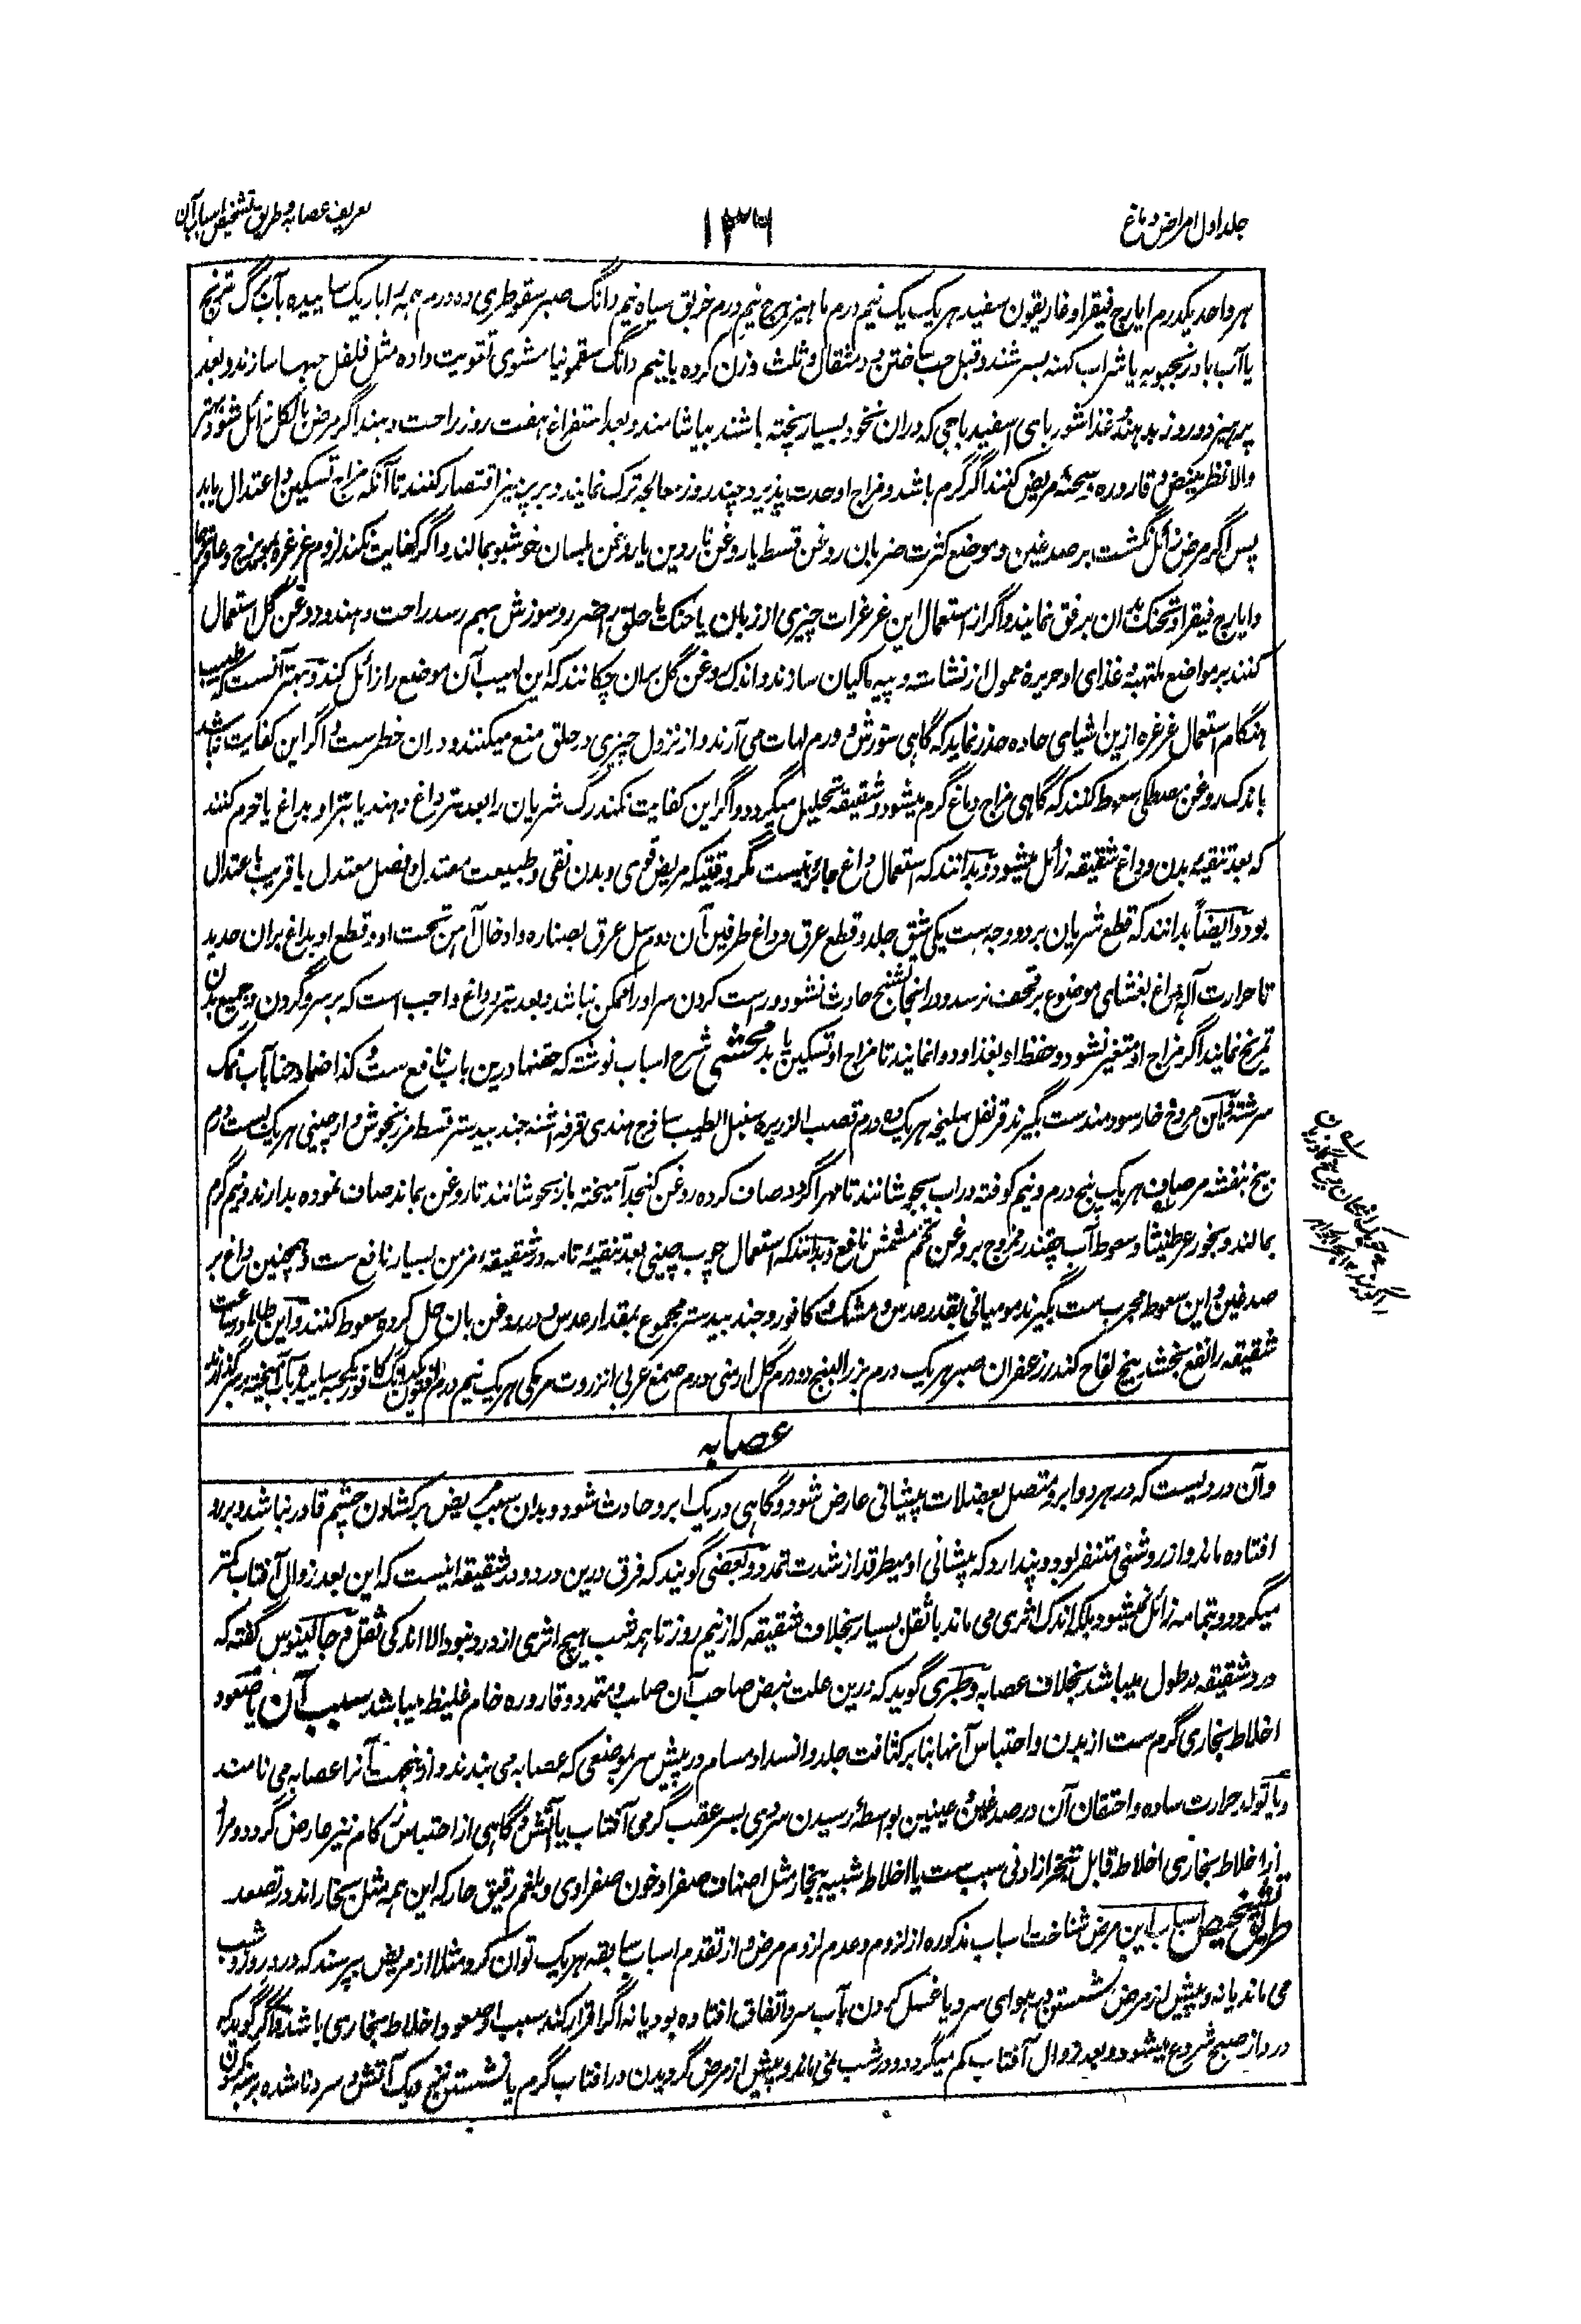 جلد اول امراض دماغ
۱۳۶
تعریف عصابه و طریق تشخیص اسباب آن
هر واحد یکدرم ایارج فیقرا و غاریقون سفید هر یک یک نیم درم ماهیزهرج نیم درم خربق سیاه نیم دانگ صبر سقوطری ده درم همه را باریک ساییده بآب برگ ترنج
یا آب بادرنجبویه یا شراب کهنه بسرشند و قبل حب ساختن بد و مثقال و ثلث وزن کرده با نیم دانگ سقمونیا مشوی تقویت داده مثل فلفل حبها سازند و بعد
پرهیز دو روز بدهند و غذا شوربای اسفیدباجی که دران نخود بسیار پخته باشند بیاشامند و بعد استفراغ هفت روز راحت دهند اگر مرض بالکل زائل شود بهتر
والا نظر بنبض و قاروره و سحنه مریض کنند اگر گرم باشد و مزاج او حدت پذیرد چند روز معالجه ترک نمایند و بر پرهیز اقتصار کنند تا آنکه مزاج تسکین و اعتدال یابد
پس اگر مرض زائل نگشت بر صدغین و موضع کثرت ضربان روغن قسط یا روغن ناردین یا روغن بلسان خوشبو بمالند و اگر کفایت نکند لزوم غرغره بمویزج و عاقرقرحا
و ایارج فیقرا و تحنک بدان برفق نمایند و اگر از استعمال این غرغرات چیزی از زبان یا حنک یا حلق را ضرر و سوزش بهم رسد راحت دهند و روغن گل استعمال
کنند بر مواضع ملتهبه و غذای او حریره معمول از نشاسته و پیه ماکیان سازند و اندک روغن گل بران چکانند که این لهیب آن موضع را زائل کند و بهتر آنست که طبیب
هنگام استعمال غرغره ازین اشیای حاده حذر نماید که گاهی سوزش و ورم لهات می آرند و از نزول چیزی در حلق منع میکنند و دران خطرست و اگر این کفایت نباشد
باندک روغن مصطکی سعوط کنند که گاهی مزاج دماغ گرم میشود و شقیقه تحلیل میگردد و اگر این کفایت نکند رگ شریان را بعد بتر داغ دهند یا بتر او بداغ یا خرم کنند
که بعد تنقیه بدن و داغ شقیقه زائل میشود و بدانند که استعمال داغ جائز نیست مگر وقتیکه مریض قوی و بدن نقی و طبیعت معتدل و فصل معتدل یا قریب باعتدال
بود و ایضاً بدانند که قطع شریان بر دو وجه ست یکی شق جلد و قطع عرق و داغ طرفین آن دوم سل عرق بصناره و ادخال آهن تحت او و قطع او بداغ بران حدید
تا حرارت آله داغ بغشای موضوع بر قحف نرسد و در انجا تشنج حادث نشود و راست کردن سر او را ممکن نباشد و بعد بتر و داغ واجب است که بر سر و گردن و جمیع بدن
تمریخ نمایند اگر مزاج او متغیر نشود و حفظ او بغذا و دوا نمایند تا مزاج او تسکین یابد محشی شرح اسباب نوشته که حقنها درین باب نافع ست و کذا ضماد حنا بآب نمک
سرشته و این مروخ خار سودمندست بگیرند قرنفل سلیخه هر یک ده درم قصب الذریره سنبل الطیب ساذج هندی قرفه اشنه جند بیدستر قسط مرزنجوش دارچینی هر یک بست درم
بیخ بنفشه مر صاف هر یک پنج درم و نیم کوفته در آب بجوشانند تا مهرا گردد صاف کرده روغن کنجد آمیخته باز بجوشانند تا روغن بماند صاف نموده بدارند و نیم گرم
بمالند و بخور عرطنیثا و سعوط آب چقندر ممزوج بروغن تخم مشمش نافع و بدانند که استعمال چوب چینی بعد تنقیه تامه در شقیقه مزمن بسیار نافع ست و همچنین داغ بر
صدغین و این سعوط مجرب ست بگیرند مومیائی بقدر عدس و مشک و کافور و جند بیدستر مجموع بمقدار عدس و در روغن بان حل کرده سعوط کنند و این طلا در ساعت
شقیقه را نفع بخشد بیخ لفاح کندر زعفران صبر هر یک درم بزر البنج دو درم گل ارمنی درم صمغ عربی انزروت مر مکی هر یک نیم درم افیون دانگ کافور
عصابه
و آن دردیست که در هر دو ابرو متصل بعضلات پیشانی عارض شود و گاهی در یک ابرو حادث شود و بدان سبب مریض بر کشادن چشم قادر نباشد و برو
افتاده ماند و از روشنی متنفر بود و پندارد که پیشانی او میطرقد از شدت تمدد و بعضی گویند که فرق درین درد و درد شقیقه اینست که این بعد زوال آفتاب کمتر
میگردد و بتمامه زائل نمیشود بلکه اندک اثری می ماند با ثقل بسیار بخلاف شقیقه که از نیم روز تا همه شب هیچ اثری از درد نبود الا اندکی ثقل و جالینوس گفته که
درد شقیقه در طول میباشد بخلاف عصابه و طبری گوید که درین علت نبض صاحب آن صلب و متمدد و قاروره خام غلیظ میباشد سبب آن یا صعود
اخلاط بخاری گرم ست از بدن و احتباس آنها بنا بر کثافت جلد و انسداد مسام در پیش سر بموضعی که عصابه می بندند و ازینجهت آنرا عصابه می نامند
و یا تولد حرارت ساده و احتقان آن در صدغین و عینین بواسطه رسیدن سردی بسر عقب گرمی آفتاب یا آتش و گاهی از احتباس زکام نیز عارض گردد و مراد
از اخلاط بخاری اخلاط قابل تبخر از ادنی سبب ست یا اخلاط شبیه ببخار مثل اصناف صفرا و خون صفراوی و بلغم رقیق حار که این همه مثل بخار اند در تصعد
طریق تشخیص اسباب این مرض شناخت اسباب مذکوره از لزوم و عدم لزوم مرض و از تقدم اسباب سابقه هر یک توان کرد مثلا از مریض پرسند که درد روز و شب
می ماند یا نه و پیش از مرض نشستن در هوای سرد یا غسل کردن بآب سرد اتفاق افتاده بود یا نه اگر اقرار کند سبب او صعود اخلاط بخاری باشد و اگر گوید که
درد از صبح شروع میشود و بعد زوال آفتاب کم میگردد و در شب نمی ماند و پیش از مرض گردیدن در آفتاب گرم یا نشستن نزدیک آتش و سرد ناشده